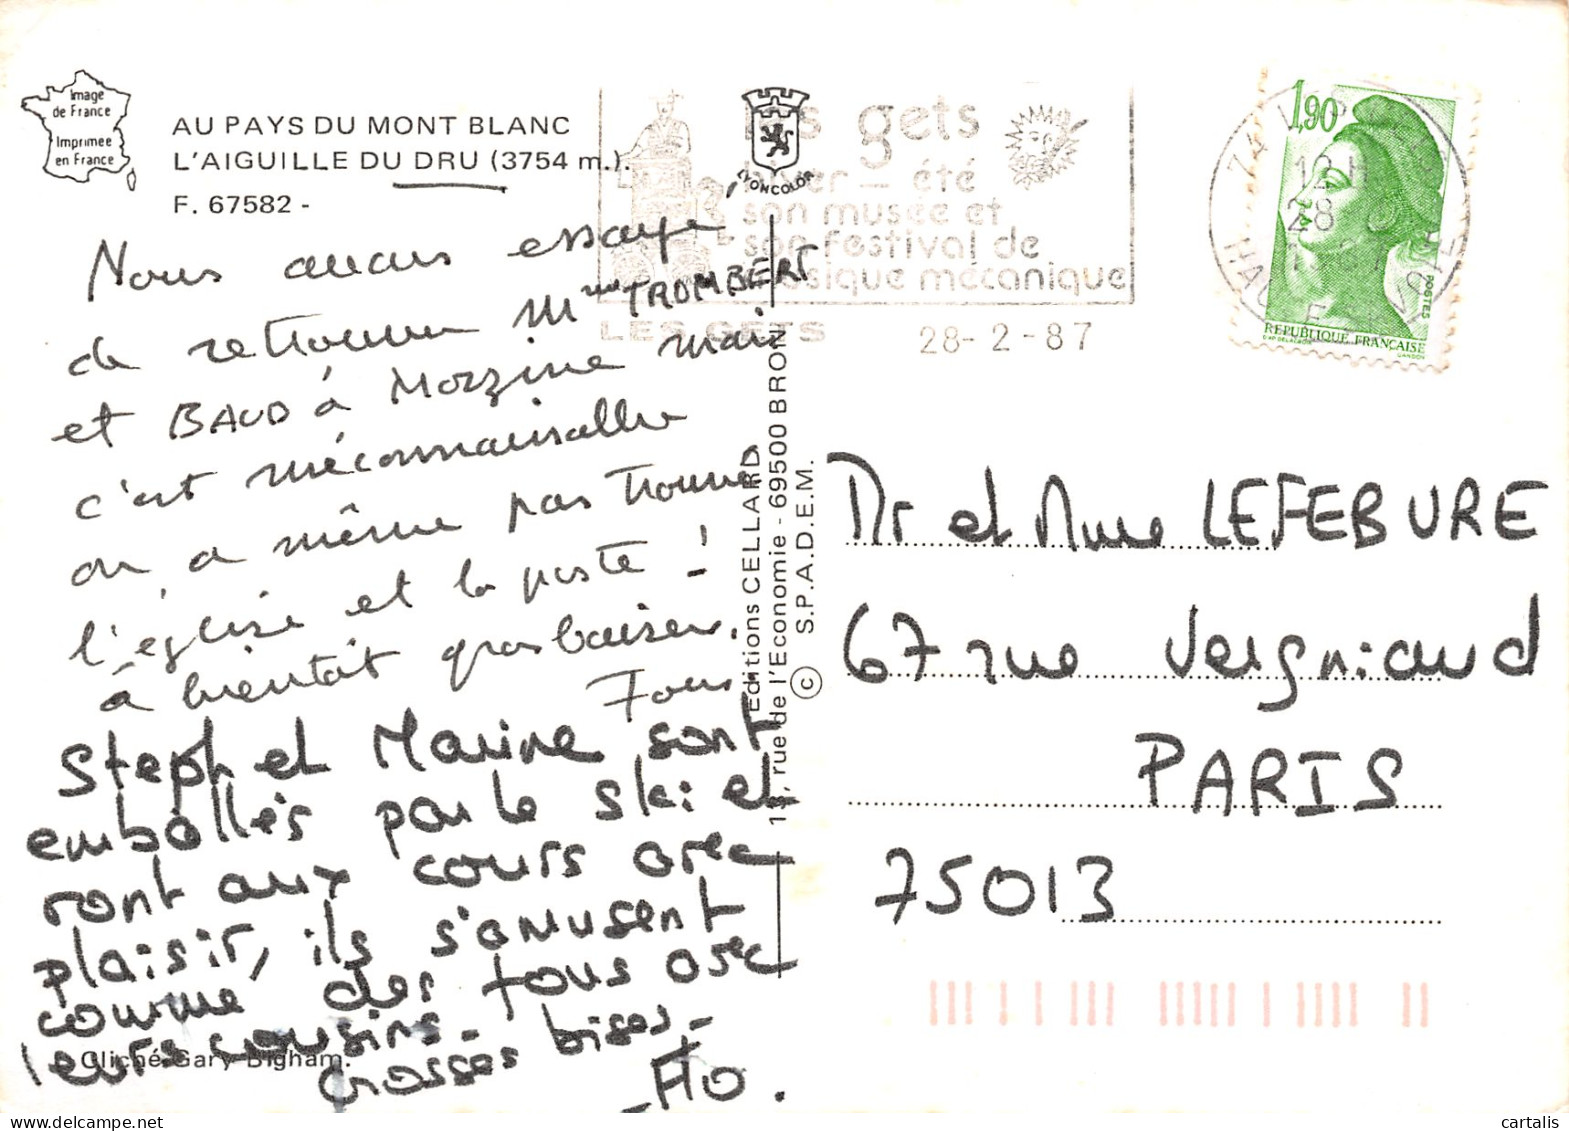 Image
de France
Imprimée
en France
AU PAYS DU MONT BLANC
L'AIGUILLE DU DRU (3754 m.).
F. 67582 -
LYONCOLOR
les gets
hiver - été
son musée et
son festival de
musique mécanique
LES GETS 28-2-87
12 H
28
1,90
POSTES
REPUBLIQUE FRANÇAISE
D'AP. DELACROIX GANDON
Nous avons essayé
de retrouver Mmes TROMBERT
et BAUD à Morzine mais
c'est méconnaissable
on a même pas trouvé
l'église et la poste !
à bientôt gros baisers.
Steph et Marine sont
emballés par le ski et
vont aux cours avec
plaisir, ils s'amusent
comme des fous avec
leurs cousins.
Grosses bises.
Flo.
Cliché Gary Bigham.
Editions CELLARD
13, rue de l'Economie - 69500 BRON
© S.P.A.D.E.M.
Mr et Mme LEFEBURE
67 rue Vergniaud
PARIS
75013
cartalis